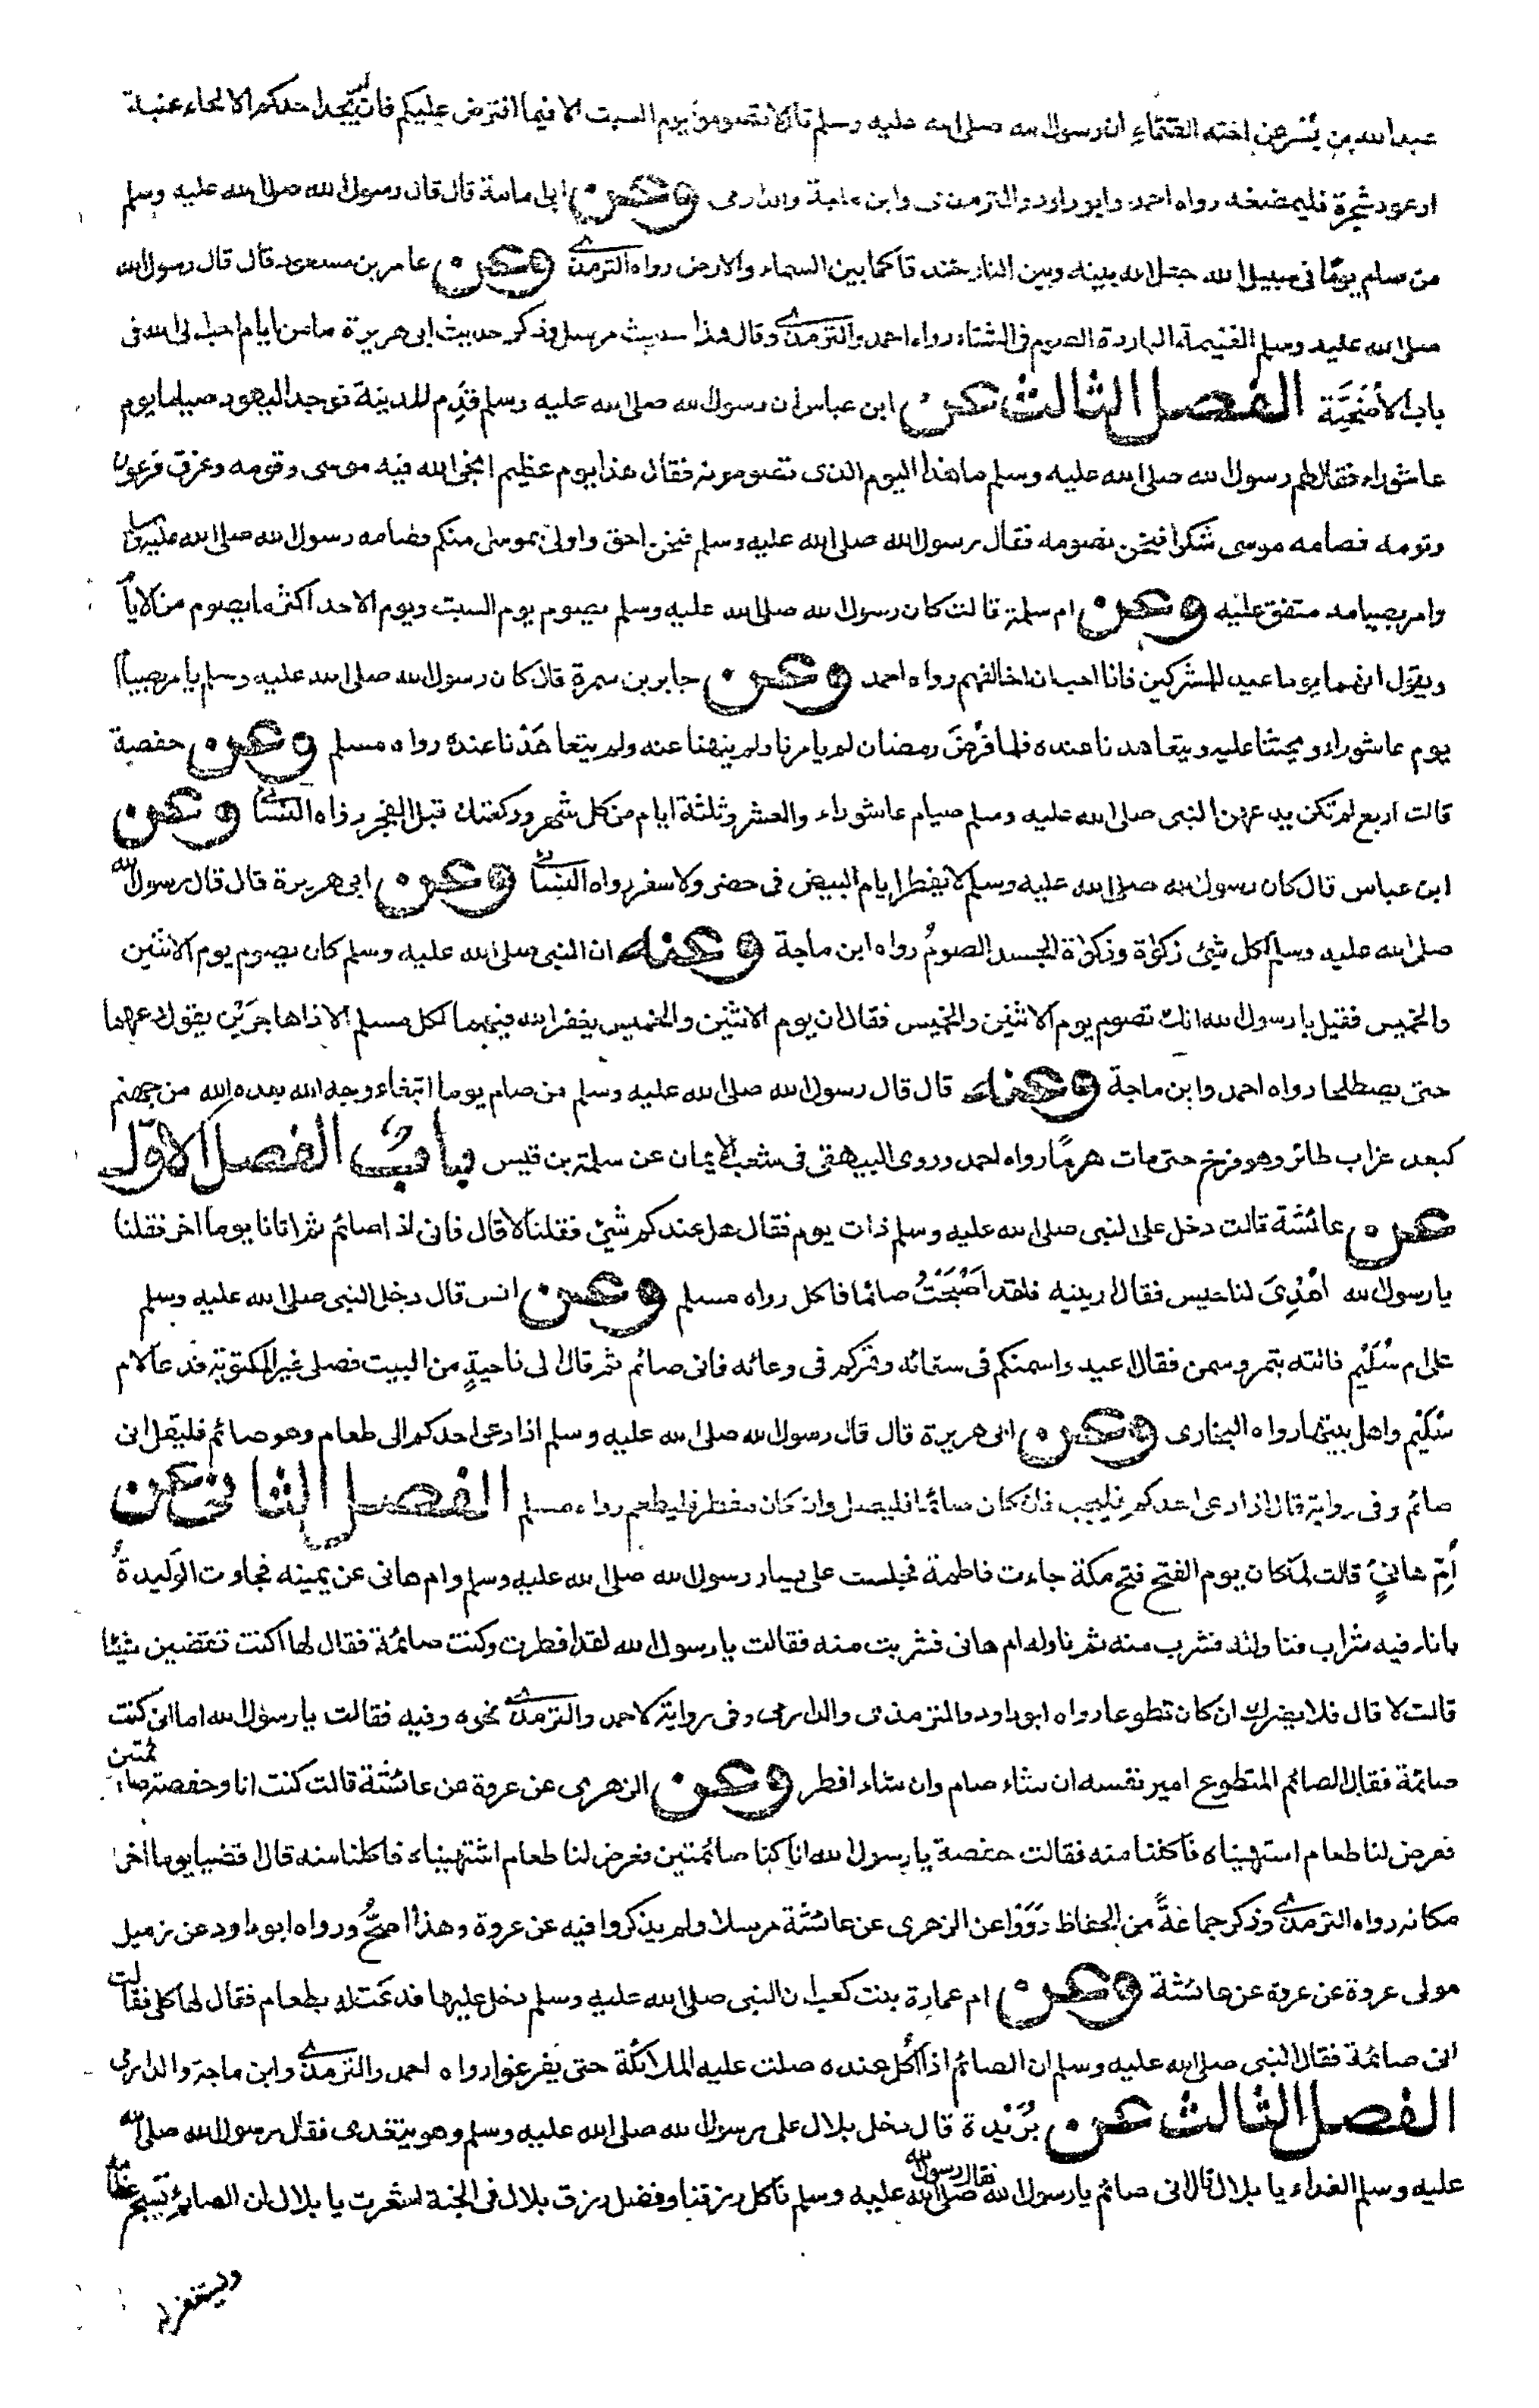 عبد الله بن بُسْر عن اخته الصَّمّاءِ ان رسول الله صلى الله عليه وسلم قال لا تصوموا يوم السبت الا فيما افترض عليكم فان لم يجد احدكم الا لحاء عنبة
او عود شجرة فليمضغه رواه احمد وابو داود والترمذى وابن ماجة والدارمى وعن ابى امامة قال قال رسول الله صلى الله عليه وسلم
من صام يومًا فى سبيل الله جعل الله بينه وبين النار خندقا كما بين السماء والارض رواه الترمذى وعن عامر بن مسعود قال قال رسول الله
صلى الله عليه وسلم الغنيمة الباردة الصوم فى الشتاء رواه احمد والترمذى وقال هذا حديث مرسل وذكر حديث ابى هريرة ما من ايام احب الى الله فى
باب الاُضْحِيَّة الفصل الثالث عن ابن عباس ان رسول الله صلى الله عليه وسلم قَدِم المدينة فوجد اليهود صياما يوم
عاشوراء فقال لهم رسول الله صلى الله عليه وسلم ما هذا اليوم الذى تصومونه فقال هذا يوم عظيم انجى الله فيه موسى وقومه وغرق فرعون
وقومه فصامه موسى شكرا فنحن نصومه فقال رسول الله صلى الله عليه وسلم فنحن احق واولى بموسى منكم فصامه رسول الله صلى الله عليه وسلم
وامر بصيامه متفق عليه وعن ام سلمة قالت كان رسول الله صلى الله عليه وسلم يصوم يوم السبت ويوم الاحد اكثر ما يصوم من الايام
ويقول انهما يوما عيد للمشركين فانا احب ان اخالفهم رواه احمد وعن جابر بن سمرة قال كان رسول الله صلى الله عليه وسلم يامر بصيام
يوم عاشوراء ويحثنا عليه ويتعاهدنا عنده فلما فُرِضَ رمضان لم يامرنا ولم ينهنا عنه ولم يتعاهَدْنا عنده رواه مسلم وعن حفصة
قالت اربع لم تكن يدعهن النبى صلى الله عليه وسلم صيام عاشوراء والعشر وثلثة ايام من كل شهر وركعتان قبل الفجر رواه النسائى وعن
ابن عباس قال كان رسول الله صلى الله عليه وسلم لا يفطر ايام البيض فى حضر ولا سفر رواه النسائى وعن ابى هريرة قال قال رسول الله
صلى الله عليه وسلم لكل شئ زكوٰة وزكوٰة الجسد الصومُ رواه ابن ماجة وعنه ان النبى صلى الله عليه وسلم كان يصوم يوم الاثنين
والخميس فقيل يا رسول الله انك تصوم يوم الاثنين والخميس فقال ان يوم الاثنين والخميس يغفر الله فيهما لكل مسلم الا ذا هاجرَيْنِ يقول دعهما
حتى يصطلحا رواه احمد وابن ماجة وعنه قال قال رسول الله صلى الله عليه وسلم من صام يوما ابتغاء وجه الله بعده الله من جهنم
كبعد غراب طائر وهو فرخ حتى مات هرمًا رواه احمد وروى البيهقى فى شعب الايمان عن سلمة بن قيس بابٌ الفصل الاوّل
عن عائشة قالت دخل على النبى صلى الله عليه وسلم ذات يوم فقال هل عندكم شئ فقلنا لا قال فانى اذا صائم ثم اتانا يوما اخر فقلنا
يا رسول الله اُهْدِىَ لنا حيس فقال ارينيه فلقد اَصْبَحْتُ صائما فاكل رواه مسلم وعن انس قال دخل النبى صلى الله عليه وسلم
على ام سُلَيْم فاتته بتمر وسمن فقال اعيدوا سمنكم فى سقائه وتمركم فى وعائه فانى صائم ثم قال الى ناحيةٍ من البيت فصلى غير المكتوبة فدعا لام
سُلَيْم واهل بيتها رواه البخارى وعن ابى هريرة قال قال رسول الله صلى الله عليه وسلم اذا دعى احدكم الى طعام وهو صائم فليقل انى
صائم وفى رواية قال اذا دعى احدكم فليجب فان كان صائما فليصل وان كان مفطر فليطعم رواه مسلم الفصل الثانى عن
اُمّ هانئٍ قالت لما كان يوم الفتح فتح مكة جاءت فاطمة فجلست على يسار رسول الله صلى الله عليه وسلم وام هانى عن يمينه فجاءت الوَليدةُ
باناء فيه شراب فناولته فشرب منه ثم ناوله ام هانى فشربت منه فقالت يا رسول الله لقد افطرت وكنت صائمة فقال لها اكنت تقضين شيئا
قالت لا قال فلا يضرك ان كان تطوعا رواه ابو داود والترمذى والدارمى وفى رواية لاحمد والترمذى نحوه وفيه فقالت يا رسول الله اما انى كنت
صائمة فقال الصائم المتطوع امير نفسه ان شاء صام وان شاء افطر وعن الزهرى عن عروة عن عائشة قالت كنت انا وحفصة صائمتين
فعرض لنا طعام اشتهيناه فاكلنا منه فقالت حفصة يا رسول الله انا كنا صائمتين فعرض لنا طعام اشتهيناه فاكلنا منه قال اقضيا يوما اخر
مكانه رواه الترمذى وذكر جماعةً من الحفاظ رَوَوْا عن الزهرى عن عائشة مرسلا ولم يذكروا فيه عن عروة وهذا اصحُّ ورواه ابو داود عن زميل
مولى عروة عن عروة عن عائشة وعن ام عمارة بنت كعب ان النبى صلى الله عليه وسلم دخل عليها فدعت له بطعام فقال لها كلى فقالت
انى صائمة فقال النبى صلى الله عليه وسلم ان الصائم اذا اُكل عنده صلت عليه الملائكة حتى يفرغوا رواه احمد والترمذى وابن ماجة والدارمى
الفصل الثالث عن بُرَيْدة قال دخل بلال على رسول الله صلى الله عليه وسلم وهو يتغدى فقال رسول الله صلى الله
عليه وسلم الغداء يا بلال قال انى صائم يا رسول الله فقال رسول الله صلى الله عليه وسلم ناكل رزقنا وفضل رزق بلال فى الجنة اشعرت يا بلال ان الصائم يسبح عظامه
ويستغفر له